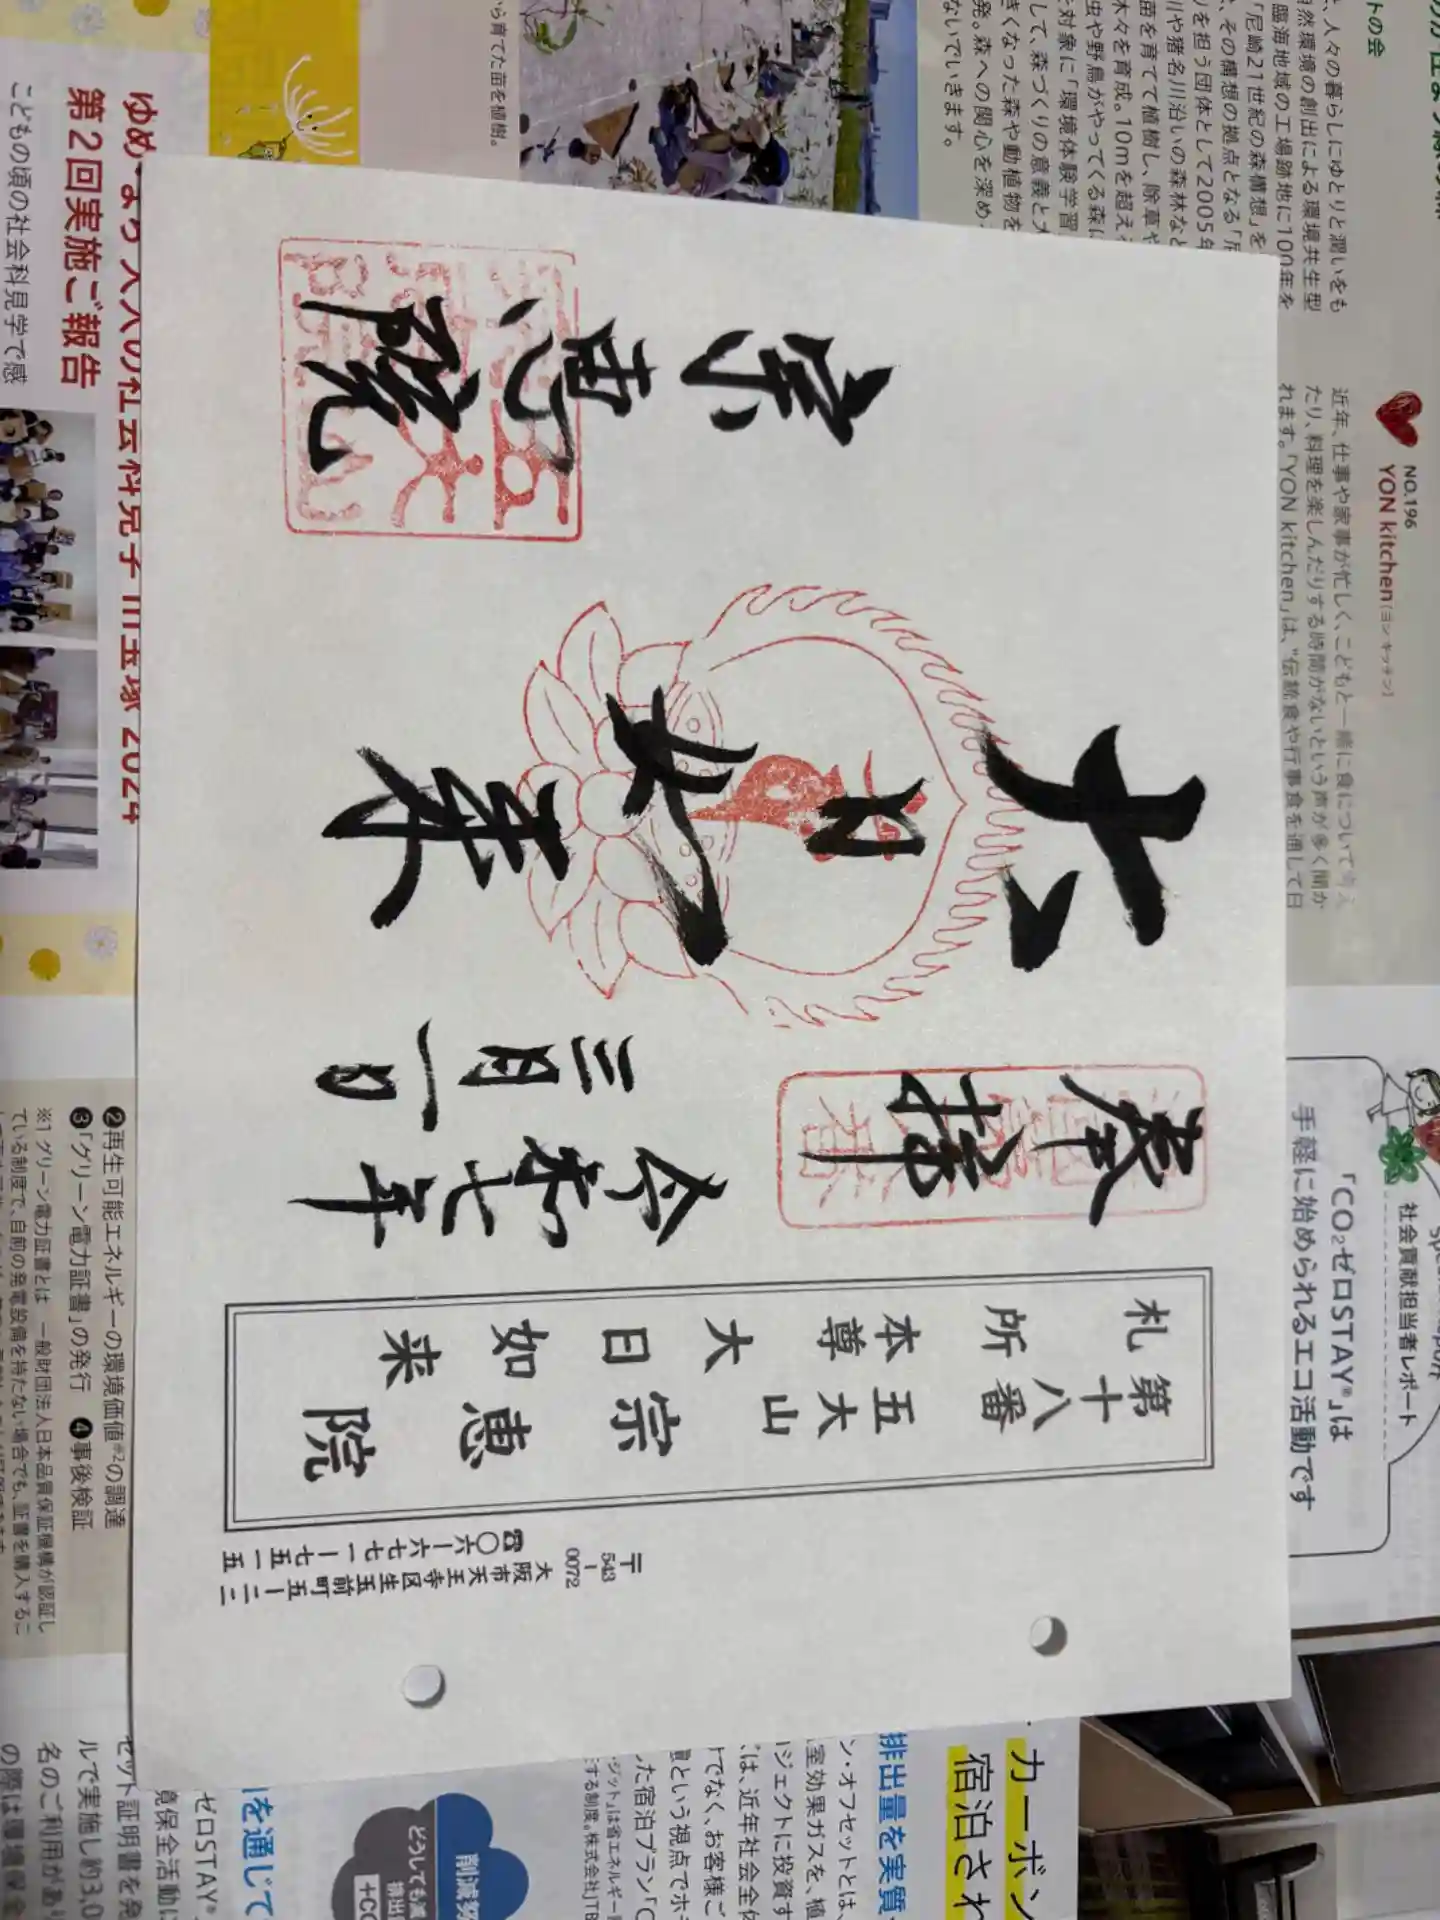 〒543-0072
大阪市天王寺区生玉前町五-二二
☎〇六-六七七一-七五一五
第十八番 五大山 宗恵院
札所 本尊 大日如来
奉拝
令和七年
三月一日
大日如来
宗恵院
トの会
、人々の暮らしにゆとりと潤いをも
然環境の創出による環境共生型
臨海地域の工場跡地に100年を
「尼崎21世紀の森構想」を
、その構想の拠点となる「
りを担う団体として2005年
川や猪名川沿いの森林など
苗を育てて植樹し、除草や
木々を育成。10mを超え
虫や野鳥がやってくる森に
対象に「環境体験学習
して、森づくりの意義と
きくなった森や動植物を
発。森への関心を深め
ないでいきます。
ら育てた苗を植樹。
NO.196
YON kitchen[ヨンキッチン]
近年、仕事や家事が忙しく、こどもと一緒に食について考え
たり、料理を楽しんだりする時間がないという声が多く聞か
れます。「YON kitchen」は、"伝統食や行事食を通して日
第2回実施ご報告
こどもの頃の社会科見学で感
社会貢献担当者レポート
「CO₂ゼロSTAY®」は
手軽に始められるエコ活動です
❷再生可能エネルギーの環境価値※2の調達
❸「グリーン電力証書」の発行 ❹事後検証
※1 グリーン電力証書とは 一般財団法人日本品質保証機構が認証し
ている制度で、自前の発電設備を持たない場合でも、証書を購入するこ
カーボン
宿泊され
排出量を実質
ン・オフセットとは、
室効果ガスを、植
ジェクトに投資す
は、近年社会全体
でなく、お客様ご
という視点でホ
た宿泊プラン「C
を通じて
ゼロSTAY®
境保全活動に
セット証明書を発
ルで実施し約3,0
名のご利用があり
の際は環境保全
削減努
どうしても減
排出
+CO